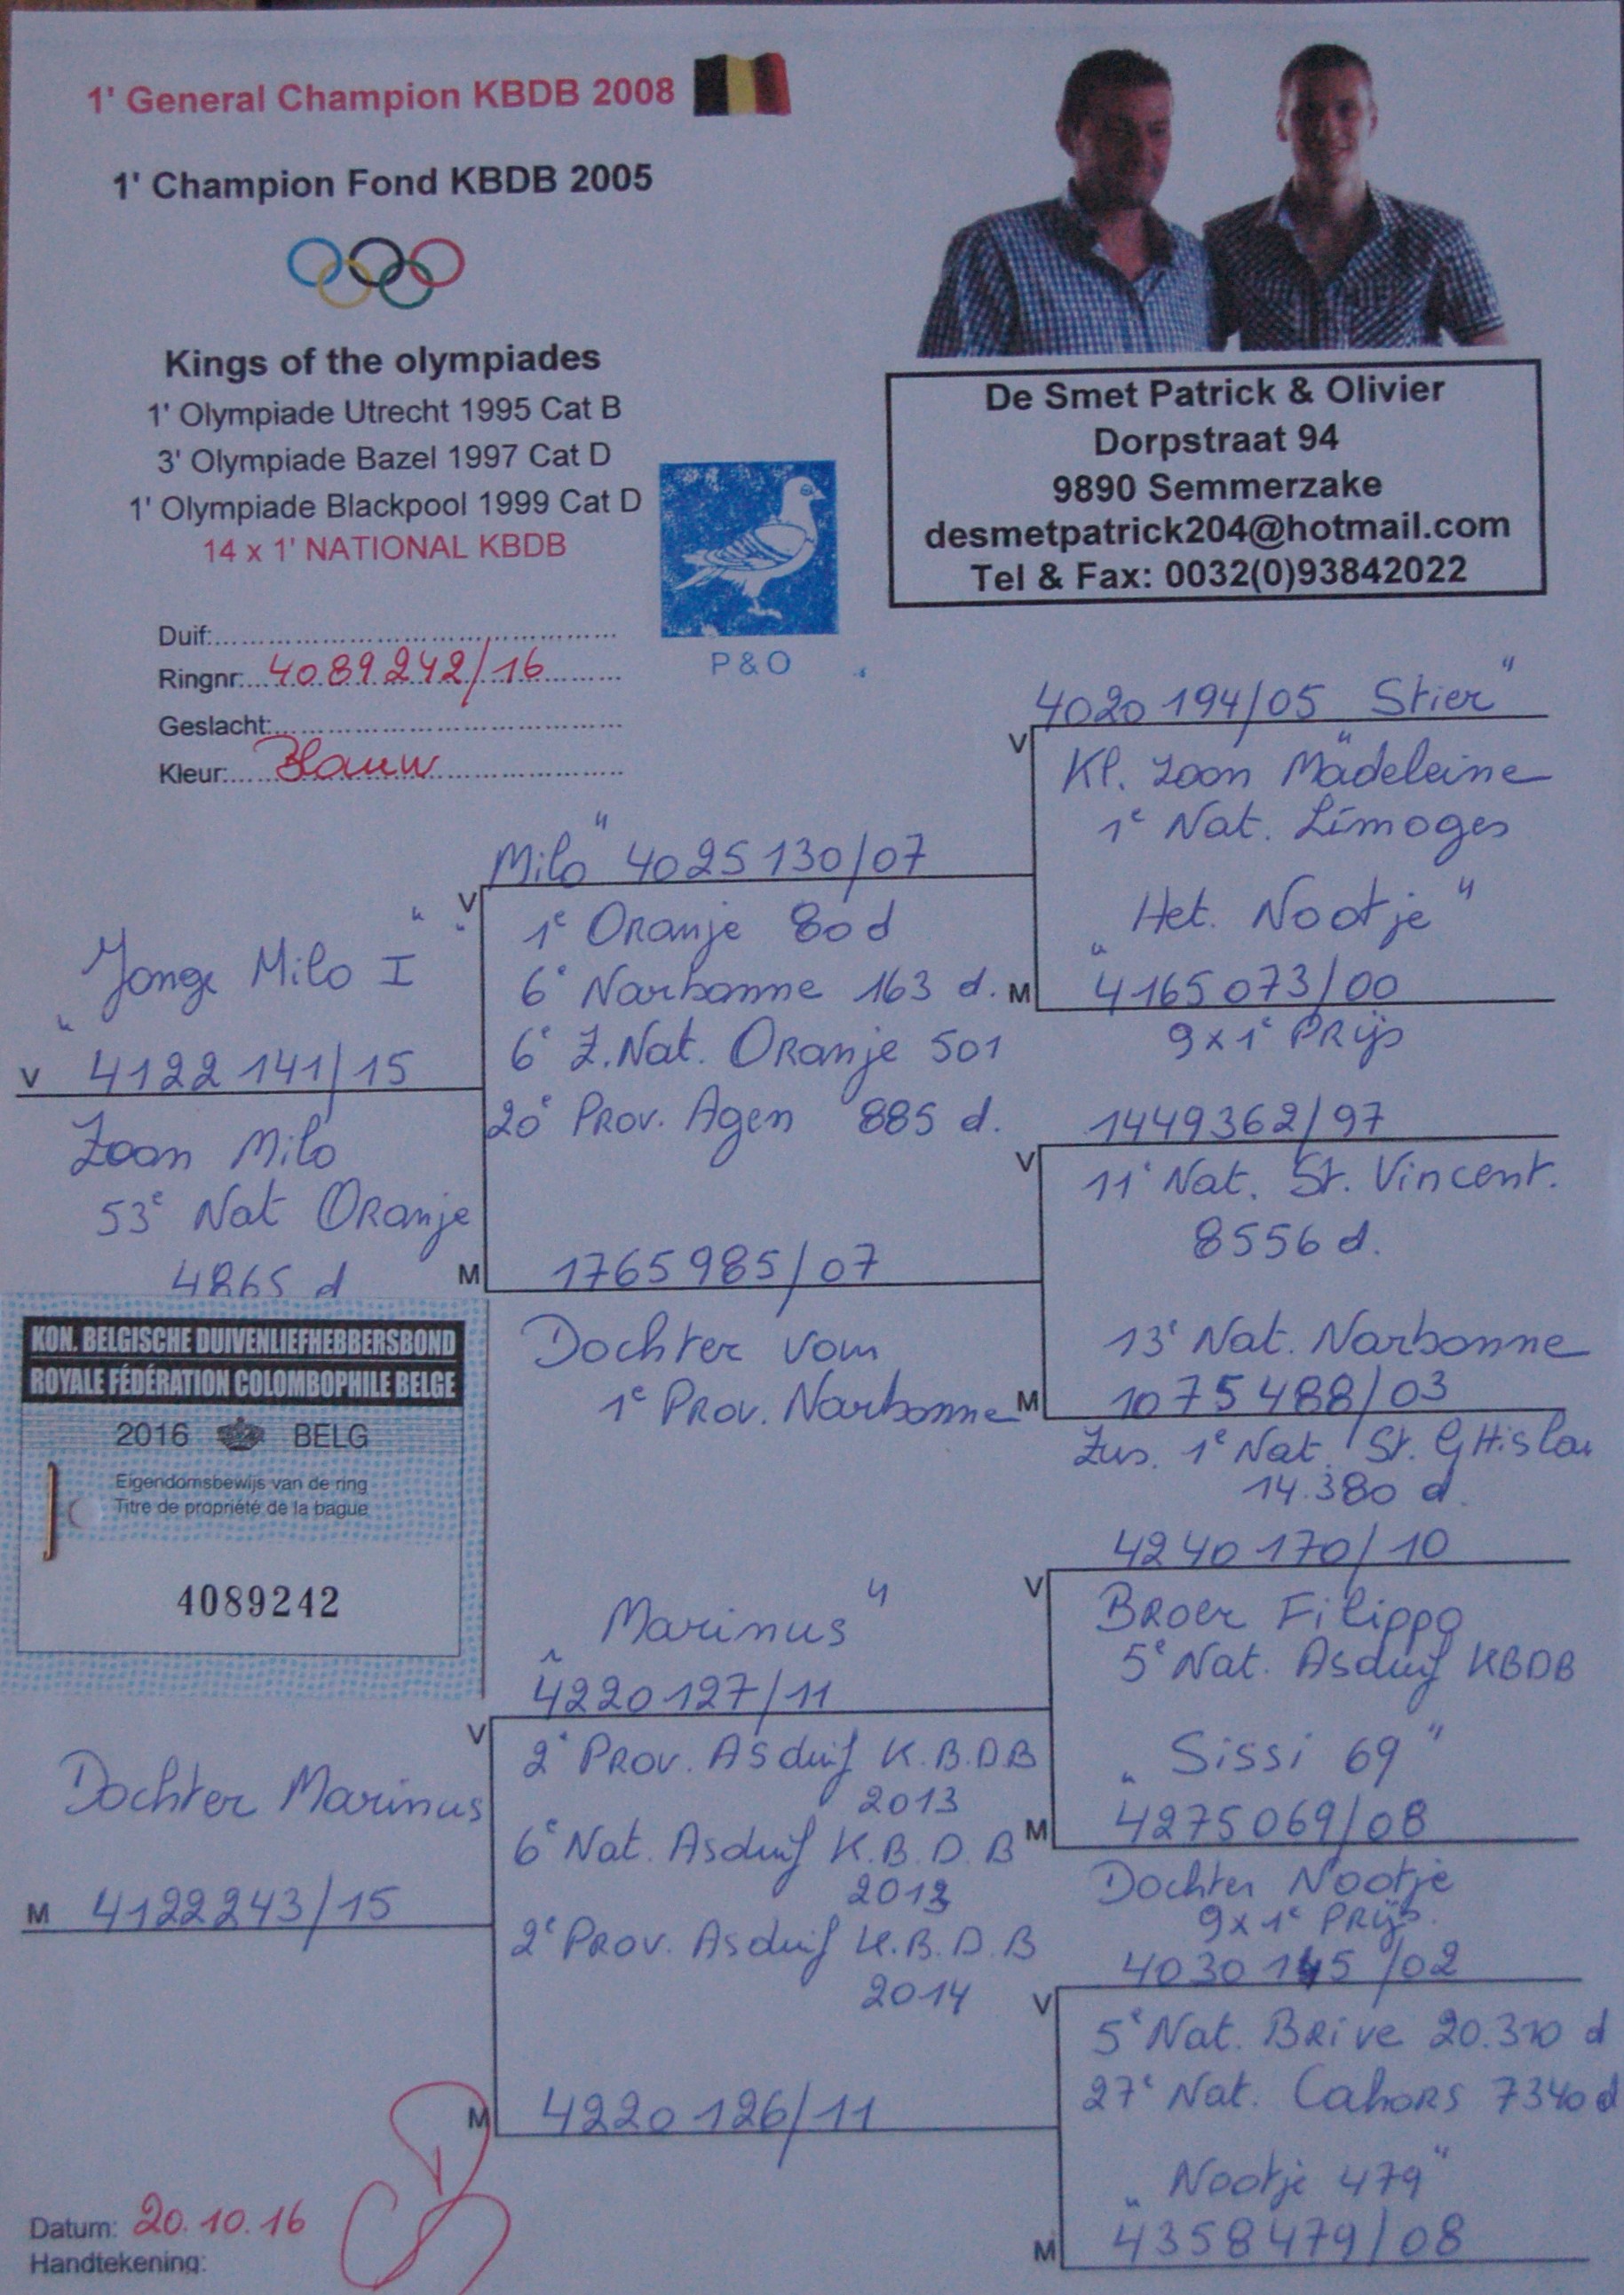 1' General Champion KBDB 2008
1' Champion Fond KBDB 2005
Kings of the olympiades
1' Olympiade Utrecht 1995 Cat B
3' Olympiade Bazel 1997 Cat D
1' Olympiade Blackpool 1999 Cat D
14 x 1' NATIONAL KBDB
De Smet Patrick & Olivier
Dorpstraat 94
9890 Semmerzake
desmetpatrick204@hotmail.com
Tel & Fax: 0032(0)93842022
P & O
Duif:
Ringnr: 4089242/16
Geslacht:
Kleur: Blauw
"Jonge Milo I"
V 4122141/15
Zoon Milo
53e Nat Oranje
4865 d
KON. BELGISCHE DUIVENLIEFHEBBERSBOND
ROYALE FÉDÉRATION COLOMBOPHILE BELGE
2016 BELG
Eigendomsbewijs van de ring
Titre de propriété de la bague
4089242
Dochter Marinus
M 4122243/15
"Milo" 4025130/07
V
1e Oranje 80 d
6e Narbonne 163 d.
6e Z.Nat. Oranje 501
20e Prov. Agen 885 d.
M 1765985/07
Dochter van
1e Prov. Narbonne
"Marinus"
4220127/11
V
2e Prov. Asduif K.B.D.B
2013
6e Nat. Asduif K.B.D.B
2013
2e Prov. Asduif K.B.D.B
2014
M 4220126/11
4020194/05 "Stier"
V
Kl. Zoon "Madeleine
1e Nat. Limoges
"Het. Nootje"
M 4165073/00
9 x 1e Prijs
1449362/97
V
11e Nat. St. Vincent.
8556 d.
13e Nat. Narbonne
M 1075488/03
Zus. 1e Nat. St. GHislai
14.380 d.
4240170/10
V
Broer Filippo
5e Nat. Asduif KBDB
"Sissi 69"
M 4275069/08
Dochter Nootje
9 x 1e Prijs.
4030145/02
V
5e Nat. Brive 20.310 d
27e Nat. Cahors 7340 d
"Nootje 479"
M 4358479/08
Datum: 20.10.16
Handtekening: